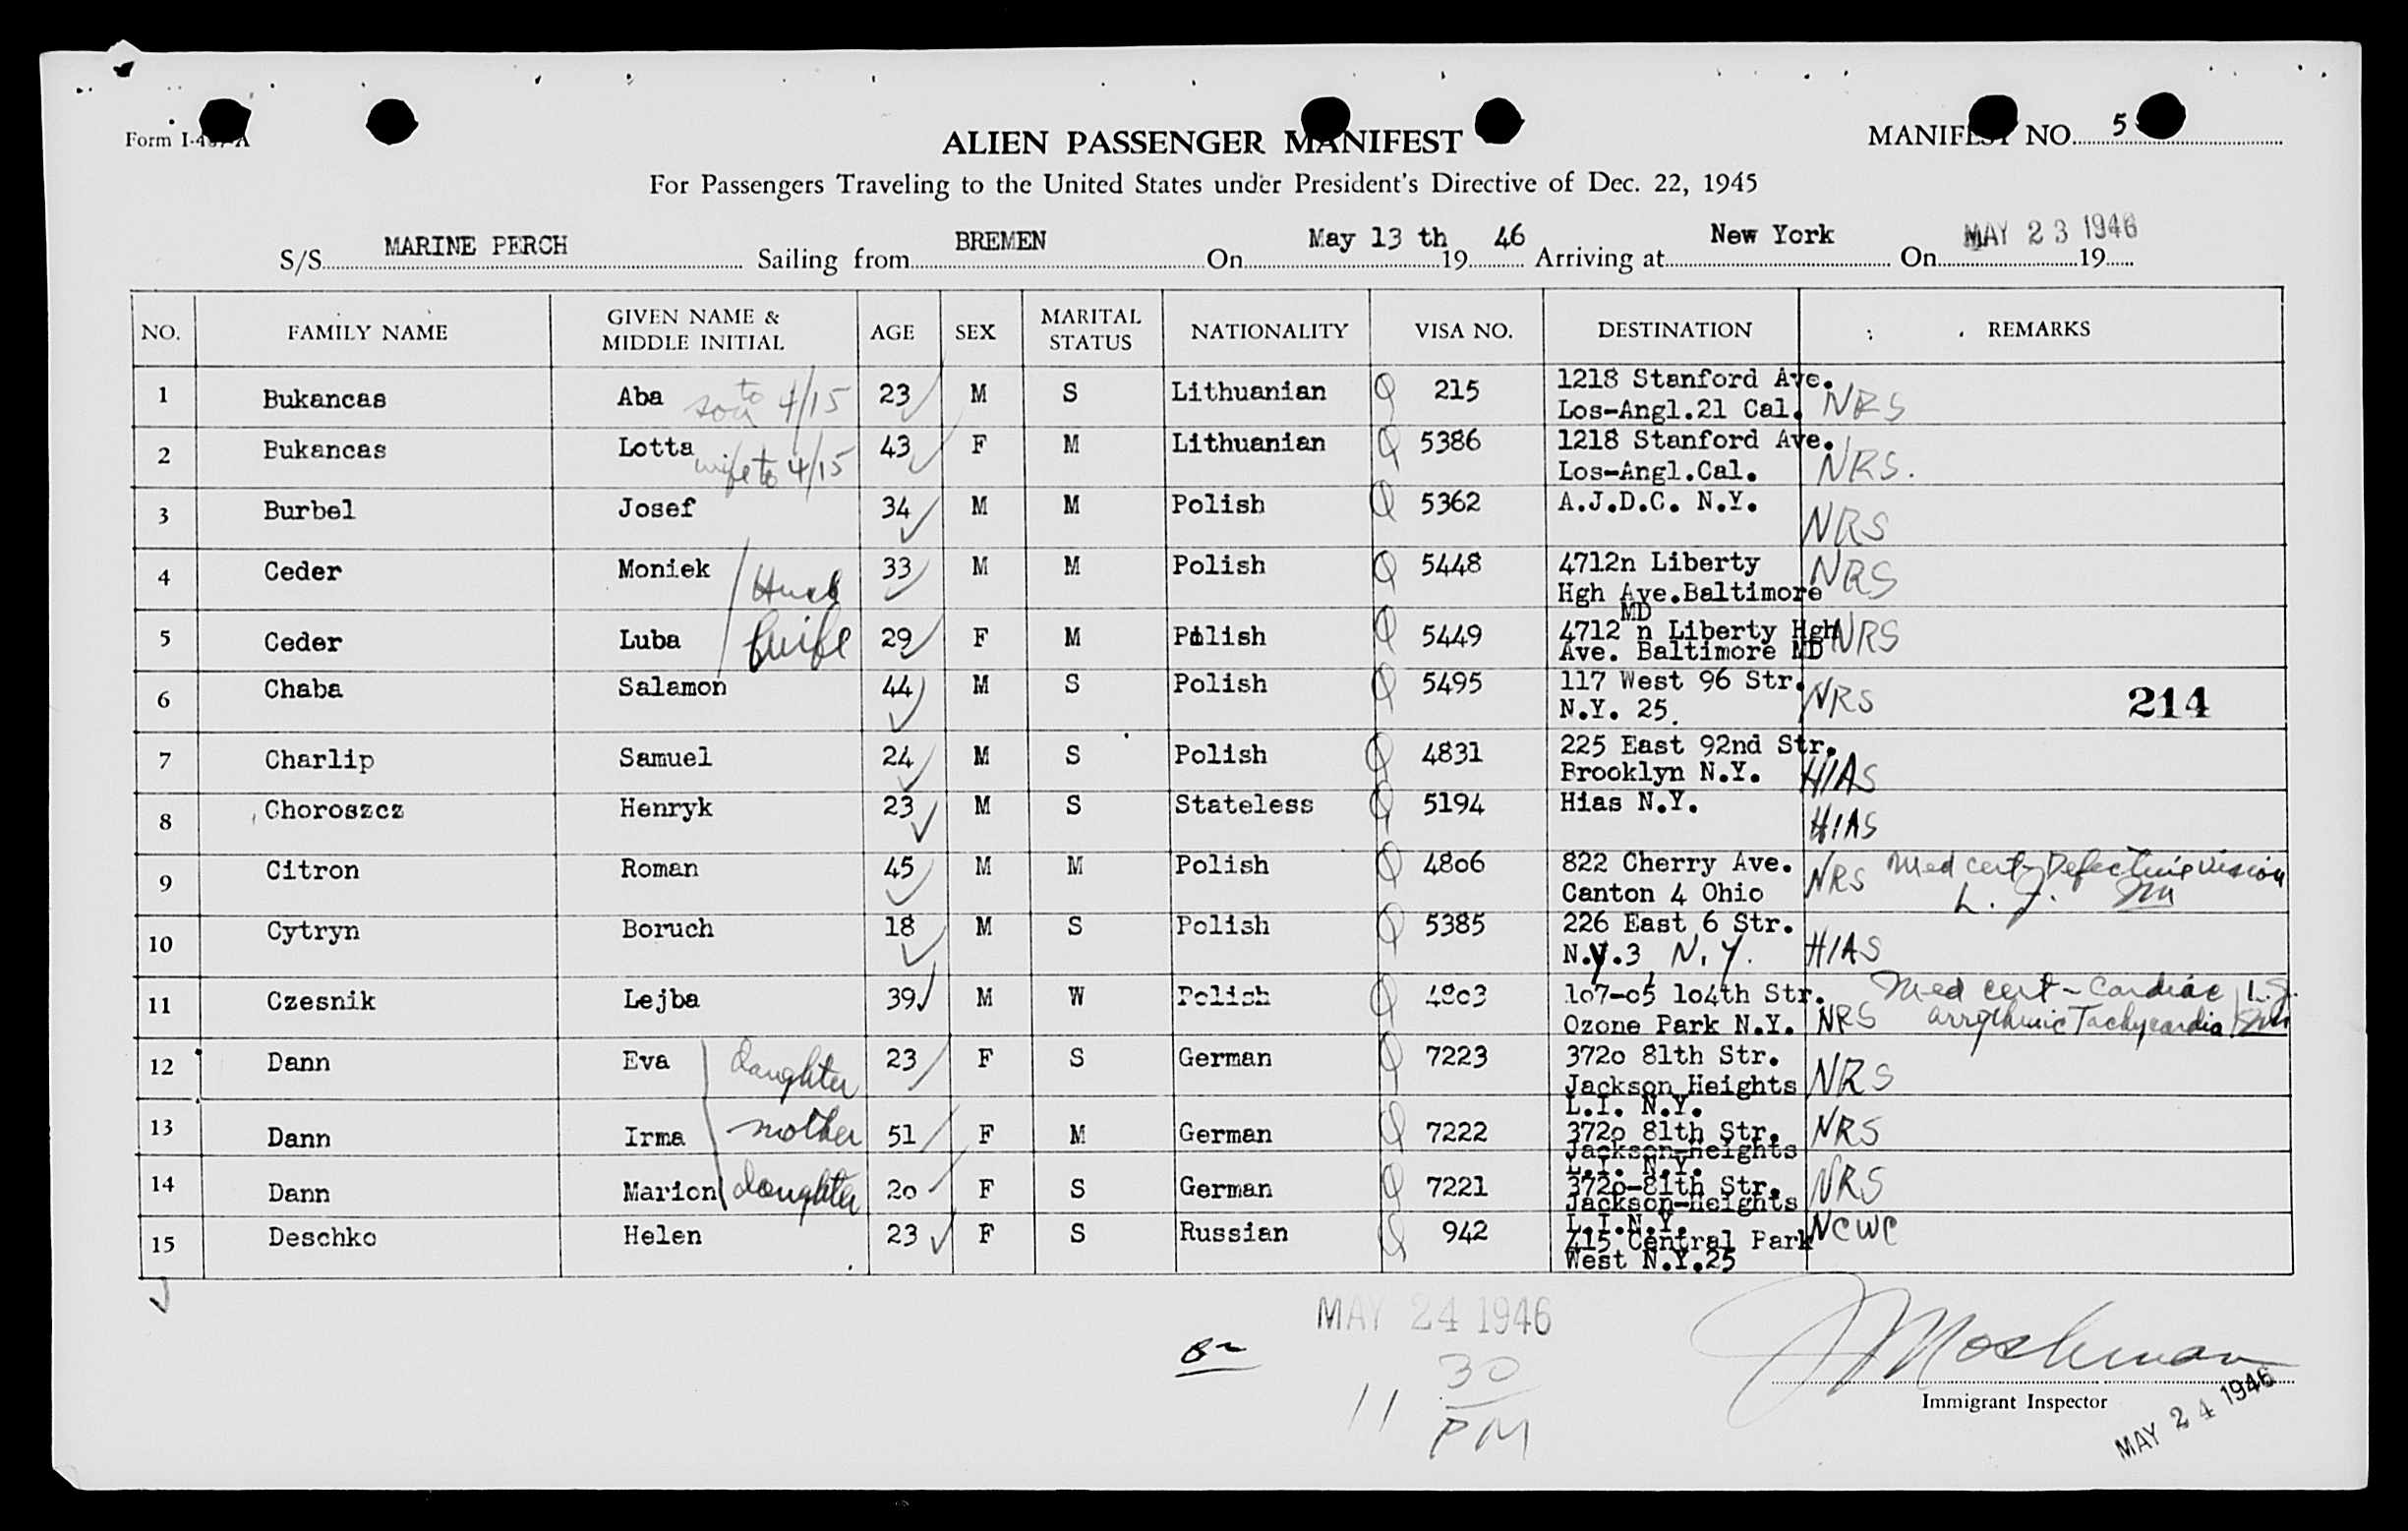 Form I-
ALIEN PASSENGER MANIFEST
MANIFEST NO. 5
For Passengers Traveling to the United States under President's Directive of Dec. 22, 1945
S/S MARINE PERCH Sailing from BREMEN On May 13 th 19 46 Arriving at New York On MAY 23 1946 19
NO. FAMILY NAME GIVEN NAME & MIDDLE INITIAL AGE SEX MARITAL STATUS NATIONALITY VISA NO. DESTINATION REMARKS
1 Bukancas Aba son to 4/15 23 M S Lithuanian 215 1218 Stanford Ave. Los-Angl.21 Cal. NRS
2 Bukancas Lotta wife to 4/15 43 F M Lithuanian 5386 1218 Stanford Ave. Los-Angl.Cal. NRS.
3 Burbel Josef 34 M M Polish 5362 A.J.D.C. N.Y. NRS
4 Ceder Moniek Husb 33 M M Polish 5448 4712n Liberty Hgh Ave.Baltimore MD NRS
5 Ceder Luba wife 29 F M Polish 5449 4712 n Liberty Hgh Ave. Baltimore MD NRS
6 Chaba Salamon 44 M S Polish 5495 117 West 96 Str. N.Y. 25. NRS 214
7 Charlip Samuel 24 M S Polish 4831 225 East 92nd Str. Brooklyn N.Y. HIAS
8 Choroszcz Henryk 23 M S Stateless 5194 Hias N.Y. HIAS
9 Citron Roman 45 M M Polish 48o6 822 Cherry Ave. Canton 4 Ohio NRS Med cert - Defective vision L. J.
10 Cytryn Boruch 18 M S Polish 5385 226 East 6 Str. N.Y.3 N.Y. HIAS
11 Czesnik Lejba 39 M W Polish 48o3 1o7-o5 1o4th Str. Ozone Park N.Y. NRS Med cert - Cardiac arrythmic Tachycardia L.J.
12 Dann Eva daughter 23 F S German 7223 372o 81th Str. Jackson Heights L.I. N.Y. NRS
13 Dann Irma mother 51 F M German 7222 372o 81th Str. Jackson-Heights L.I. N.Y. NRS
14 Dann Marion daughter 2o F S German 7221 372o-81th Str. Jackson-Heights L.I.N.Y. NRS
15 Deschko Helen 23 F S Russian 942 415 Central Park West N.Y.25 NCWC
MAY 24 1946
11 30 PM
Moshman
Immigrant Inspector
MAY 24 1946